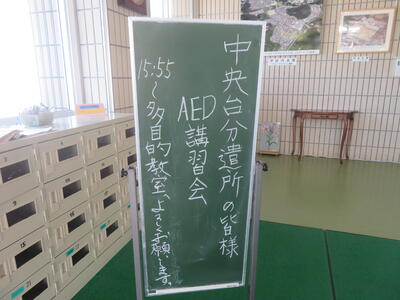 中央台分遣所の皆様
AED講習会
15:55～多目的教室、よろしくお願いします。